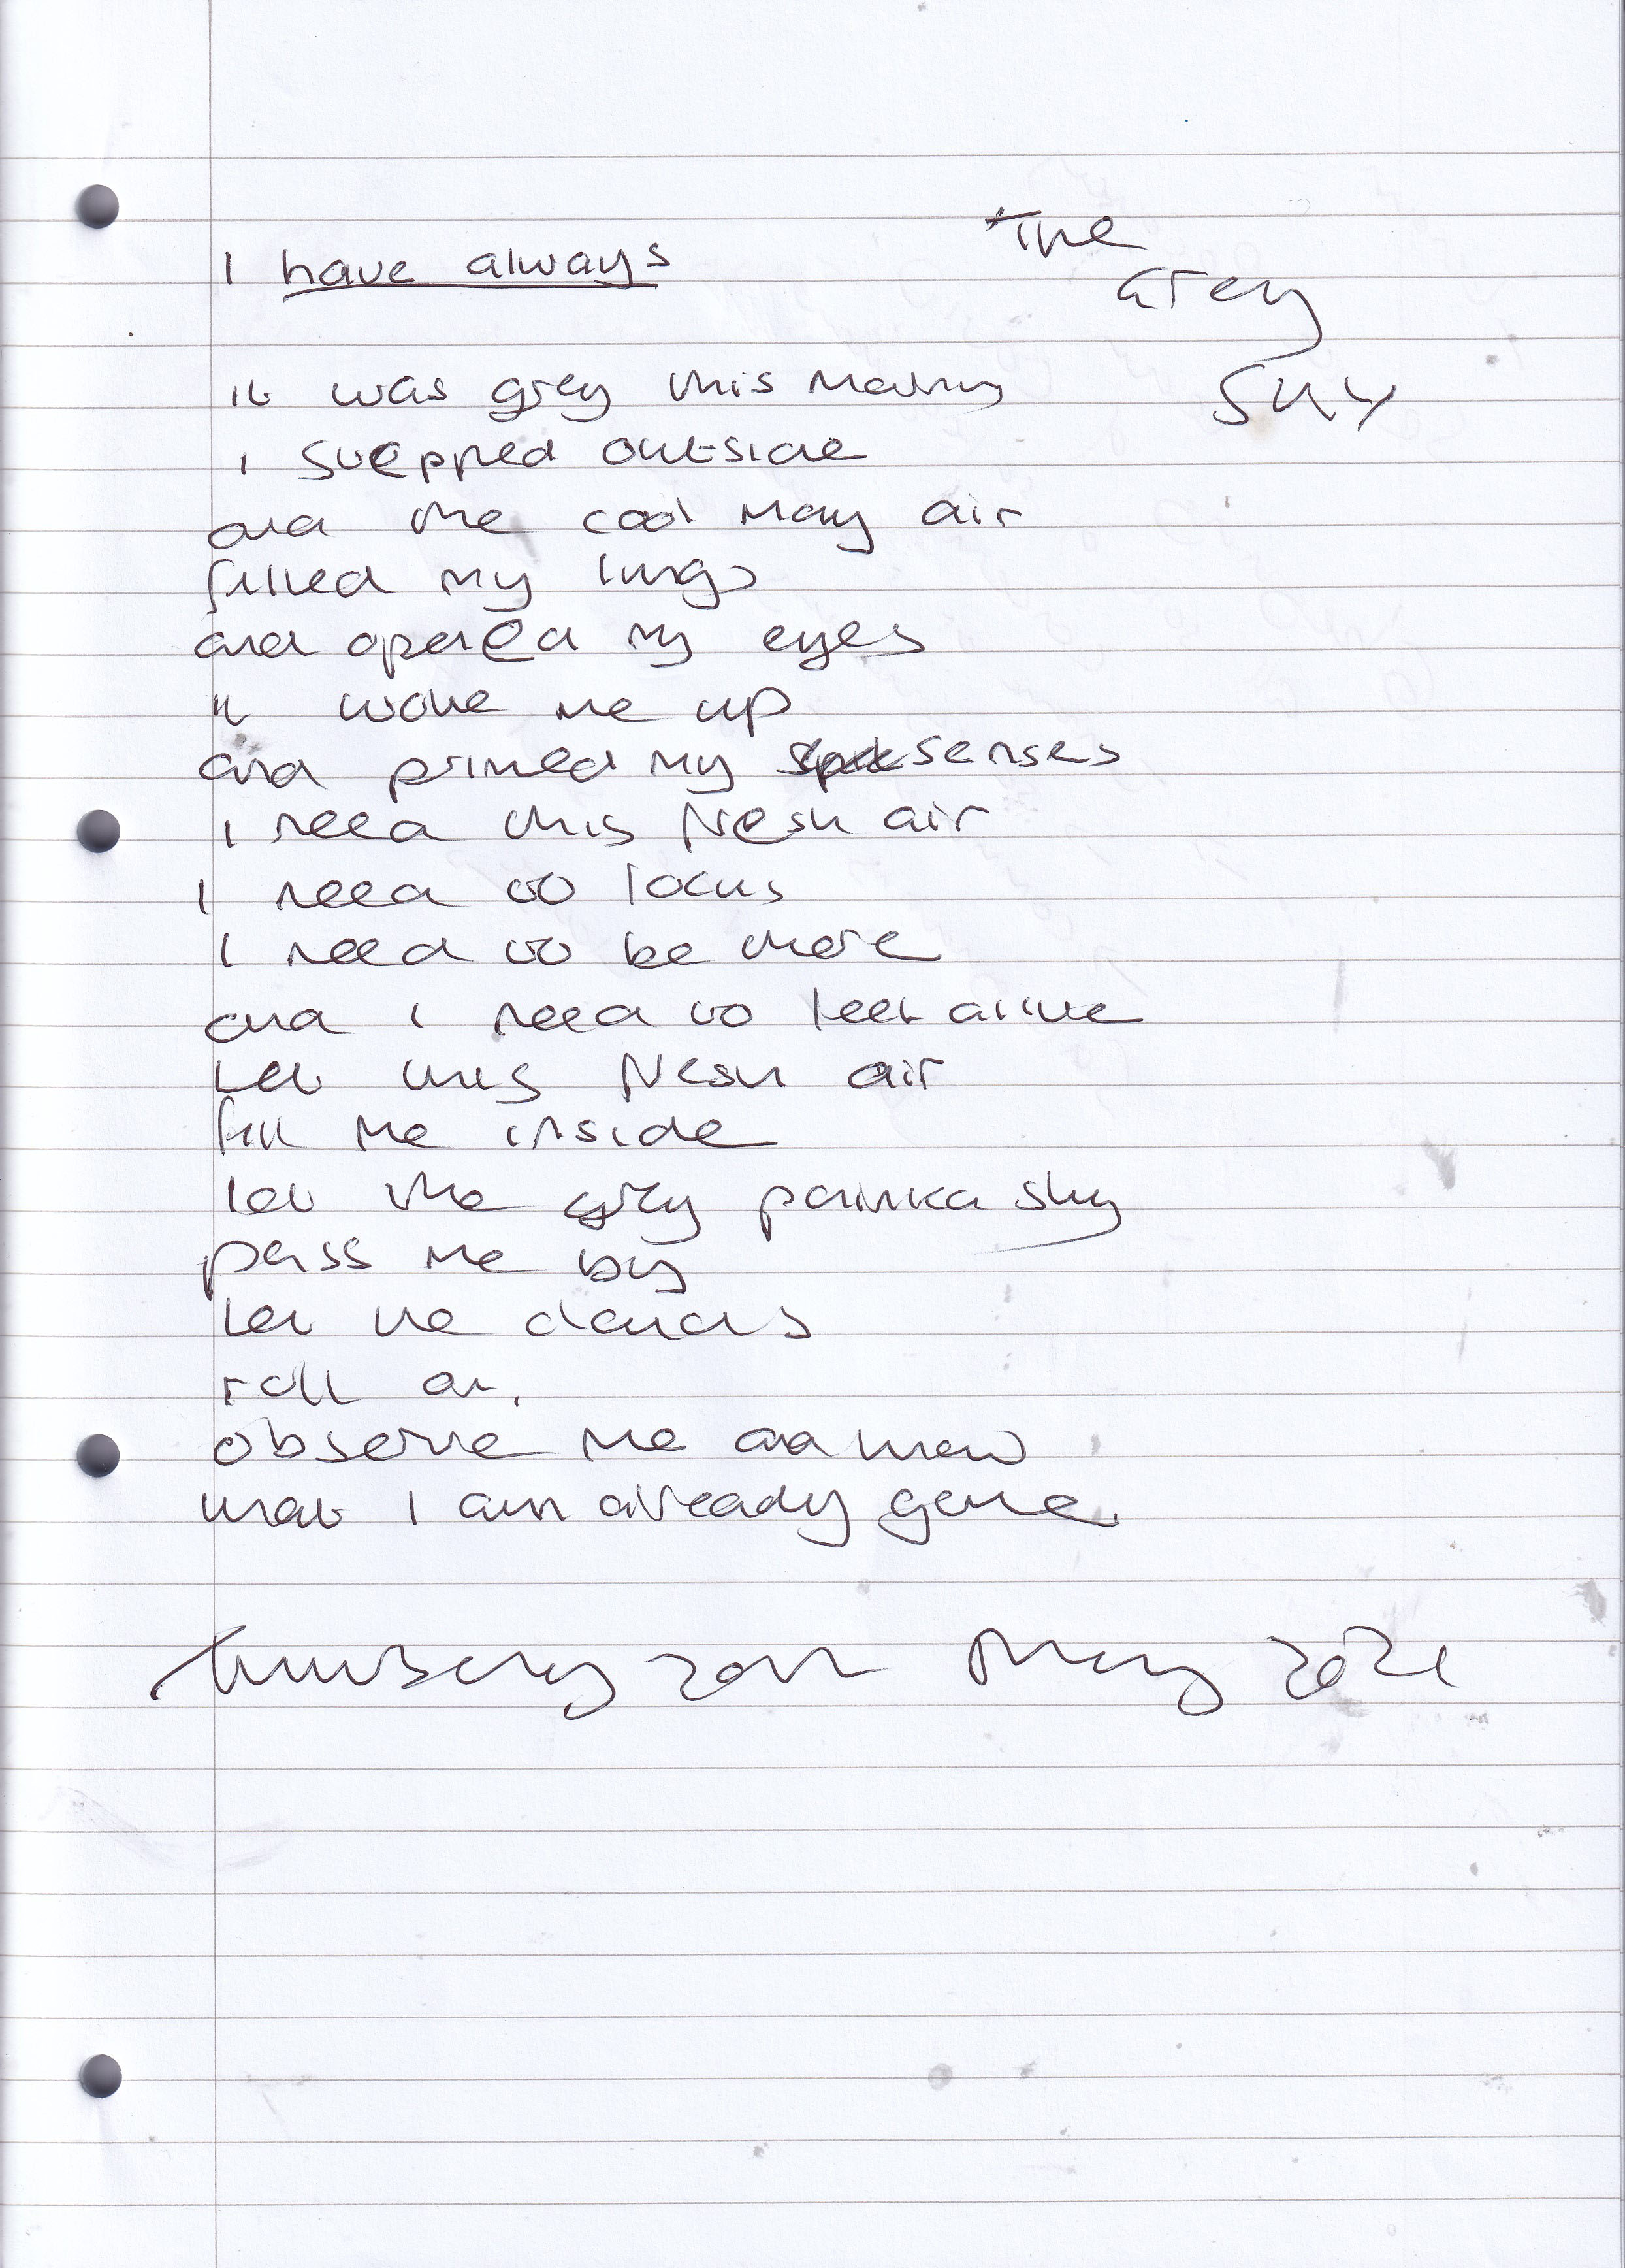 I have always
The
Grey
Sky
it was grey this morning
I stepped outside
and the cool May air
filled my lungs
and opened my eyes
it woke me up
and primed my senses
I need this fresh air
I need to focus
I need to be there
and I need to feel alive
Let this fresh air
fill me inside
let the grey painted sky
pass me by
let the clouds
roll on.
observe me and know
that I am already gone.
Thursday 20th May 2021